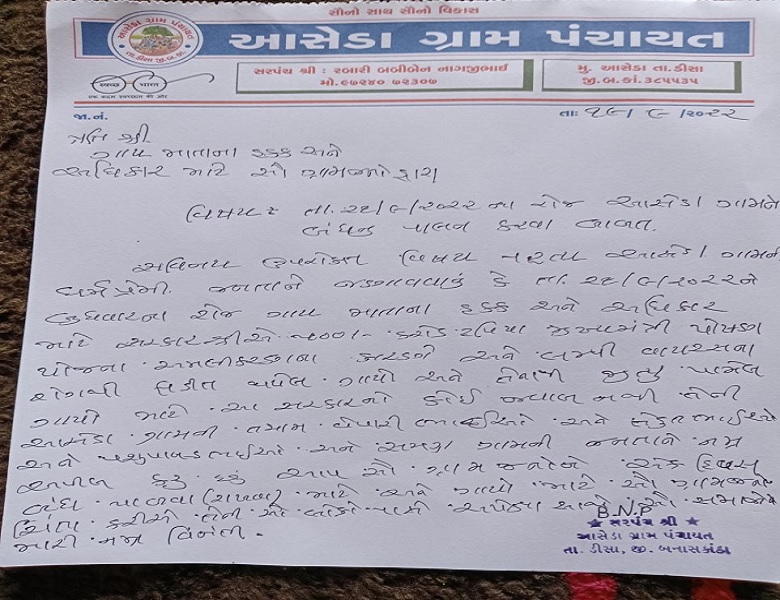 સૌનો સાથ સૌનો વિકાસ
આસેડા ગ્રામ પંચાયત
આસેડા ગ્રામ પંચાયત
તા.ડીસા જી.બ.કાં.
સરપંચ શ્રી : રબારી બબીબેન નાગજીભાઈ
મો.૯૭૨૪૦ ૭૨૩૦૭
મુ. આસેડા તા.ડીસા
જી.બ.કાં.૩૮૫૫૩૫
સ્વચ્છ ભારત
એક કદમ સ્વચ્છતા કી ઓર
જા.નં.
તા: ૧૯/૯/૨૦૨૨
પ્રતિ શ્રી
ગાય માતાના હકક અને
અધિકાર માટે સૌ ગ્રામજનો દ્વારા
વિષય: તા.૨૧/૯/૨૦૨૨ ના રોજ આસેડા ગામને
બંધનુ પાલન કરવા બાબત.
સવિનય ઉપરોક્ત વિષય પરત્વે આસેડા ગામની
ધર્મપ્રેમી જનતાને જણાવવાનું કે તા.૨૧/૯/૨૦૨૨ને
બુધવારના રોજ ગાય માતાના હકક અને અધિકાર
માટે સરકારશ્રીએ ૫૦૦/- કરોડ રૂપિયા મુખ્યમંત્રી પોષણ
યોજના અમલીકરણના કારણે અને લમ્પી વાયરસના
રોગથી પીડીત થયેલ ગાયો અને તેનાથી મૃત્યુ પામેલ
ગાયો માટે આ સરકારનો કોઈ જવાબ નથી તેની
આસેડા ગામની તમામ વેપારી ભાઈઓ અને ખેડુત ભાઈઓ
અને પશુપાલક ભાઈઓ અને સમગ્ર ગામની જનતાને નમ્ર
અપીલ કરૂ છું આપ સૌ ગ્રામજનોએ એક દિવસ
બંધ પાળવા (રાખવા) માટે અને ગાયો માટે સૌ ગ્રામજનો
ચિંતા કરીએ તેની સૌ લોકો પાસે અપેક્ષા
મારી નમ્ર વિનંતી.
B.N.P
★ સરપંચ શ્રી ★
આસેડા ગ્રામ પંચાયત
તા. ડીસા, જી. બનાસકાંઠા